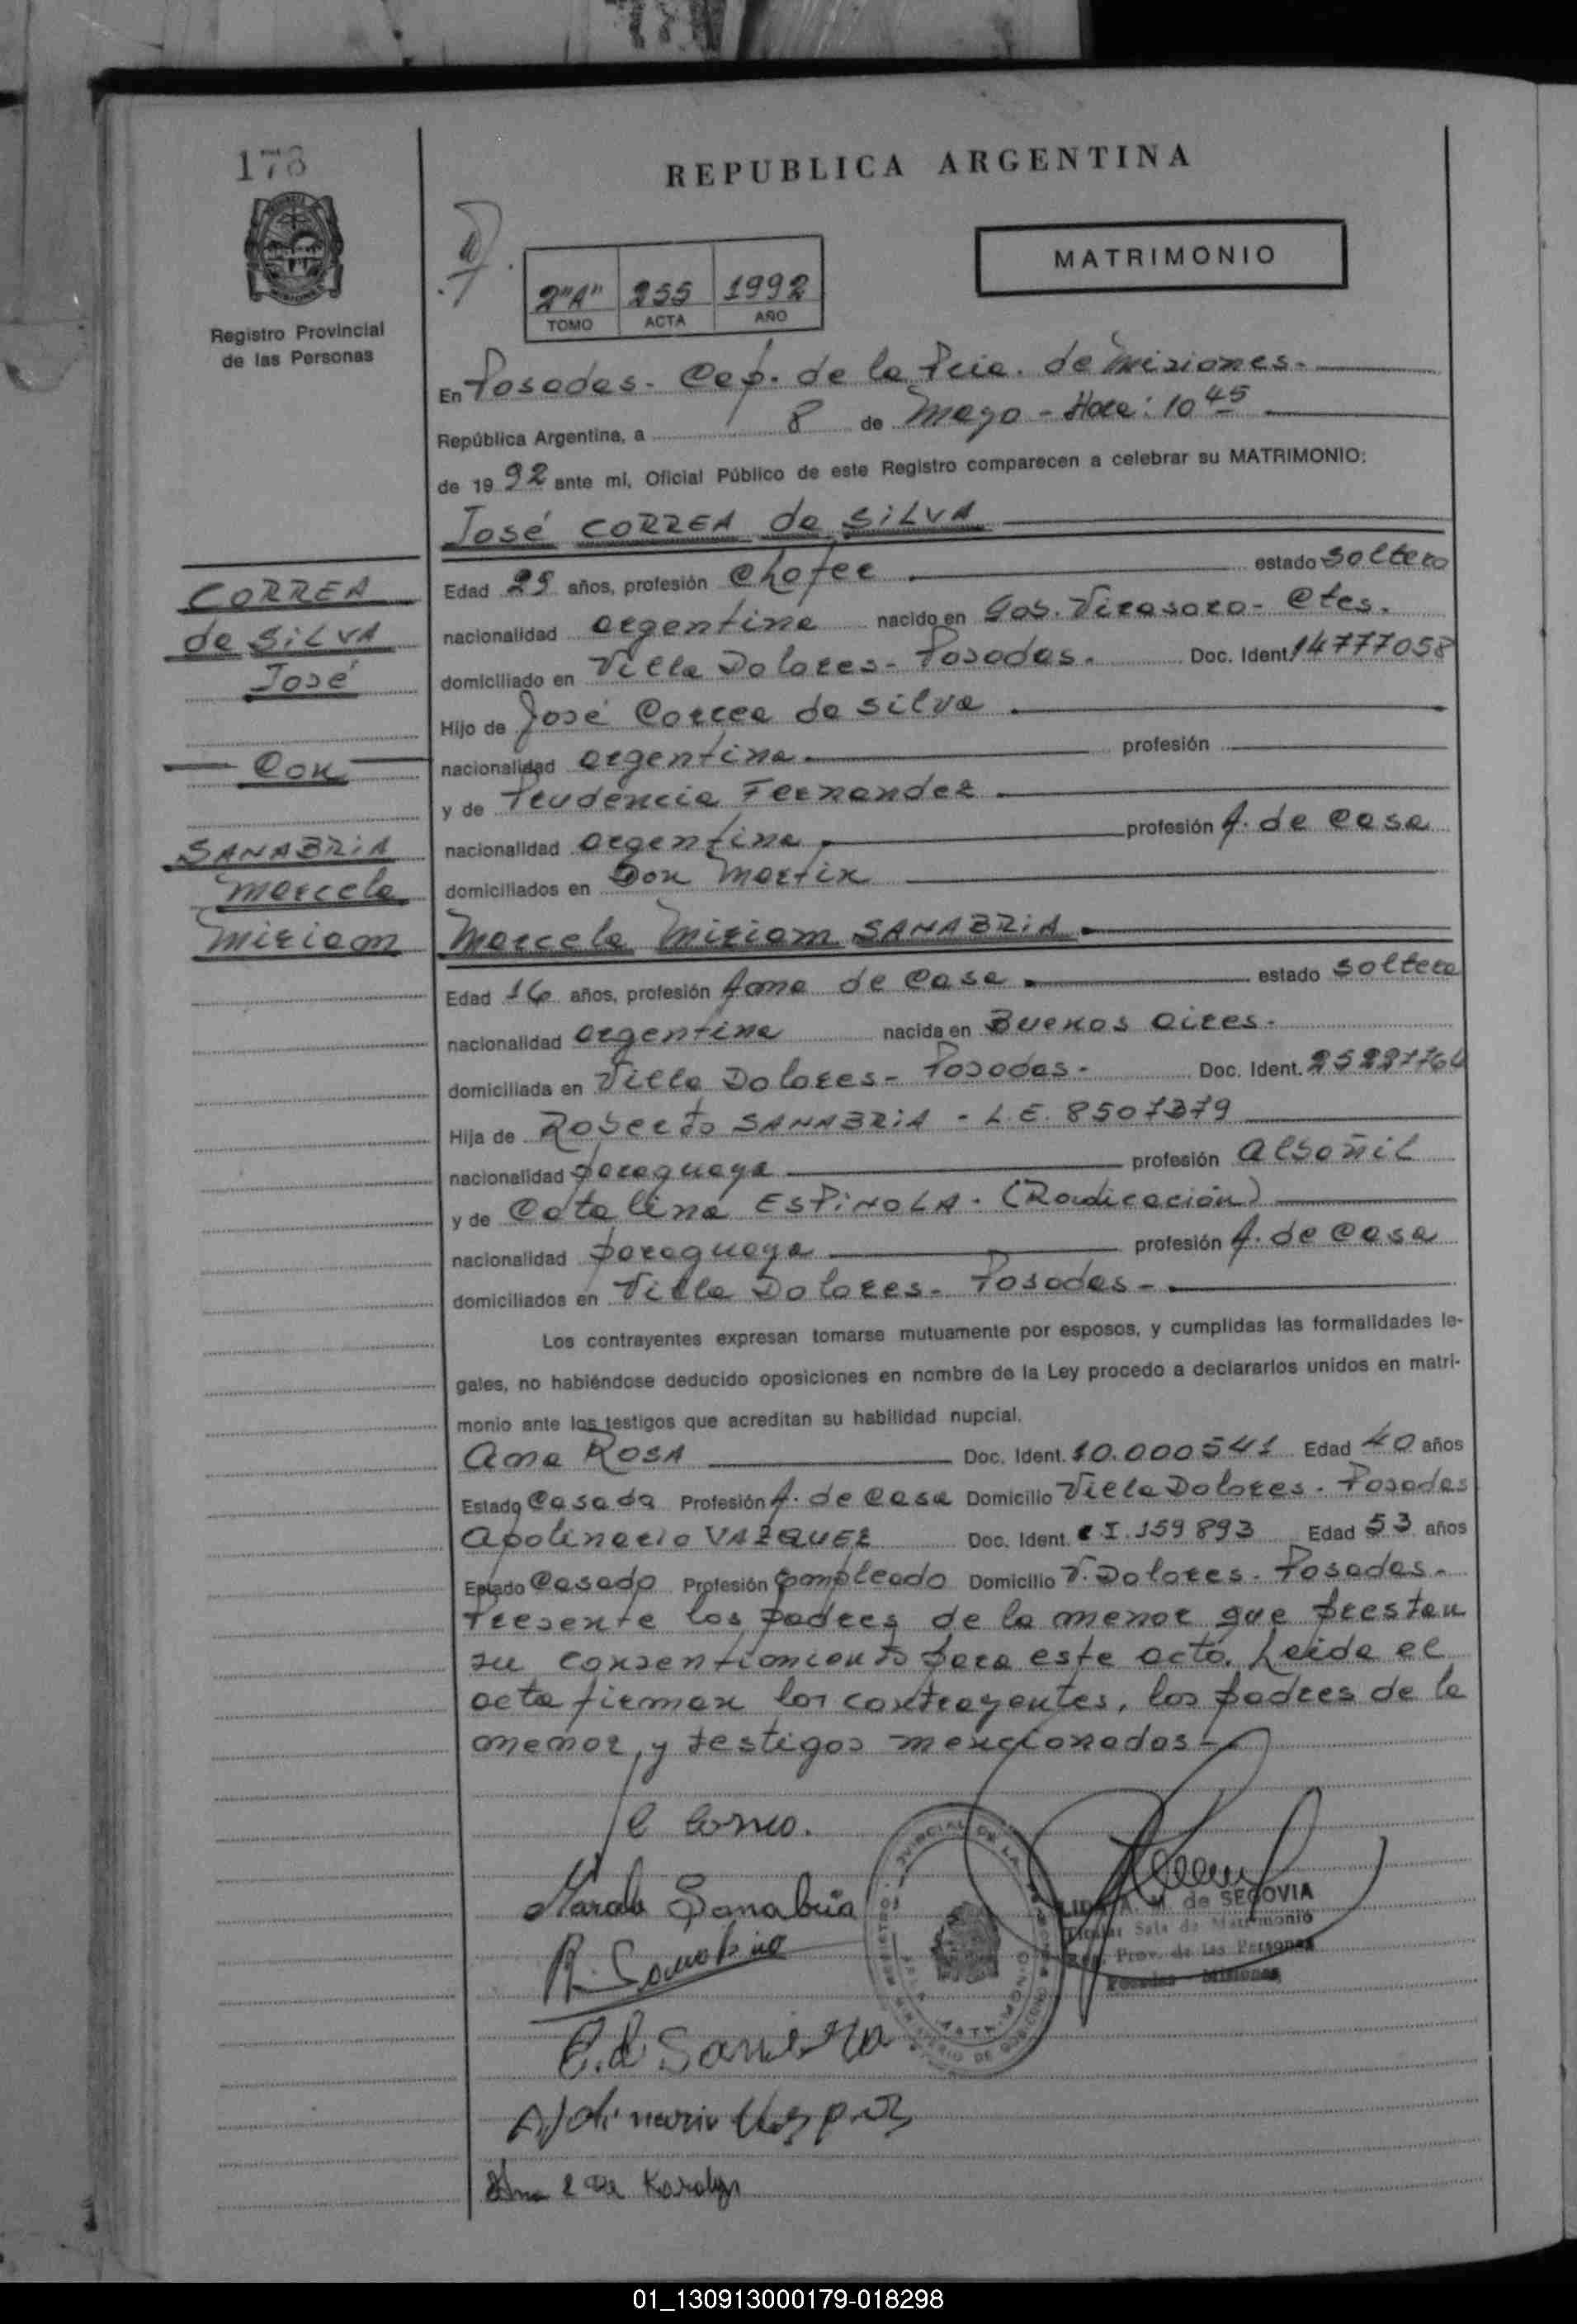 178
REPUBLICA ARGENTINA
MATRIMONIO
Registro Provincial
de las Personas
2"A" 255 1992
TOMO ACTA AÑO
En Posadas - Cap. de la Pcia. de Misiones.
República Argentina, a 8 de Mayo - Hora: 10 45
de 19 92 ante mi, Oficial Público de este Registro comparecen a celebrar su MATRIMONIO:
José CORREA da SILVA
CORREA
da SILVA
José
Con
SANABRIA
Marcela
Miriam
Edad 29 años, profesión Chofer estado soltero
nacionalidad argentina nacido en Gob. Virasoro - Ctes.
domiciliado en Villa Dolores - Posadas. Doc. Ident. 14777058
Hijo de José Correa da Silva
nacionalidad argentina profesión
y de Prudencia Fernandez
nacionalidad argentina profesión A. de Casa
domiciliados en Don Martin
Marcela Miriam SANABRIA
Edad 16 años, profesión Ama de Casa estado soltera
nacionalidad argentina nacida en Buenos Aires.
domiciliada en Villa Dolores - Posadas - Doc. Ident.
Hija de Roberto SANABRIA - L.E. 8507379
nacionalidad paraguaya profesión albañil
y de Catalina ESPINOLA - (Radicación)
nacionalidad paraguaya profesión A. de Casa
domiciliados en Villa Dolores - Posadas -
Los contrayentes expresan tomarse mutuamente por esposos, y cumplidas las formalidades le-
gales, no habiéndose deducido oposiciones en nombre de la Ley procedo a declararlos unidos en matri-
monio ante los testigos que acreditan su habilidad nupcial.
Ana ROSA Doc. Ident. 10.000541 Edad 40 años
Estado Casada Profesión A. de Casa Domicilio Villa Dolores - Posadas
Apolinario VAZQUEZ Doc. Ident. C I. 159893 Edad 53 años
Estado Casado Profesión Empleado Domicilio V. Dolores - Posadas -
Presente los padres de la menor que prestan
su consentimiento para este acto. Leida el
acta firman los contrayentes, los padres de la
menor, y testigos mencionados -
Sanabria
R. Sanabria
LIDIA A. M. de SEGOVIA
Titular Sala de Matrimonio
Reg. Prov. de las Personas
Posadas - Misiones
Apolinario
01_130913000179-018298